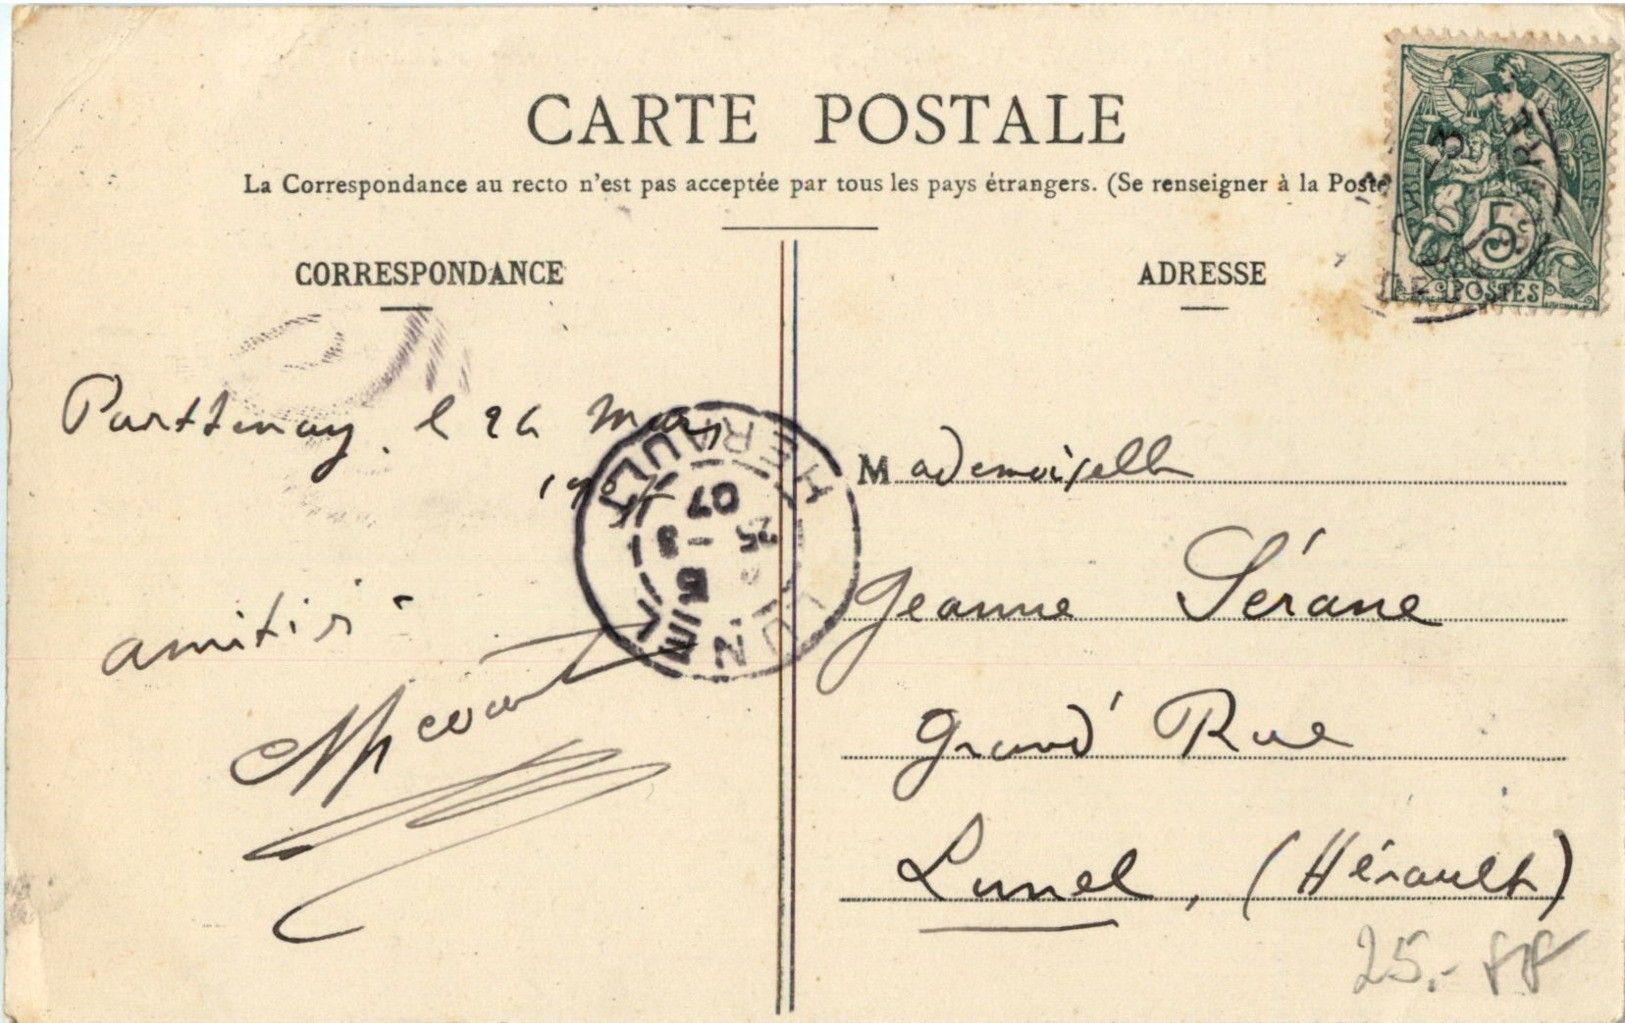 CARTE POSTALE
La Correspondance au recto n'est pas acceptée par tous les pays étrangers. (Se renseigner à la Poste
CORRESPONDANCE
Parthenay, le 24 Mars
amitiés
ADRESSE
Mademoiselle
Jeanne Sérane
Grand' Rue
Lunel, (Hérault)
25.-
RÉPUBLIQUE FRANÇAISE
5
POSTES
HERAULT
25 -3
07